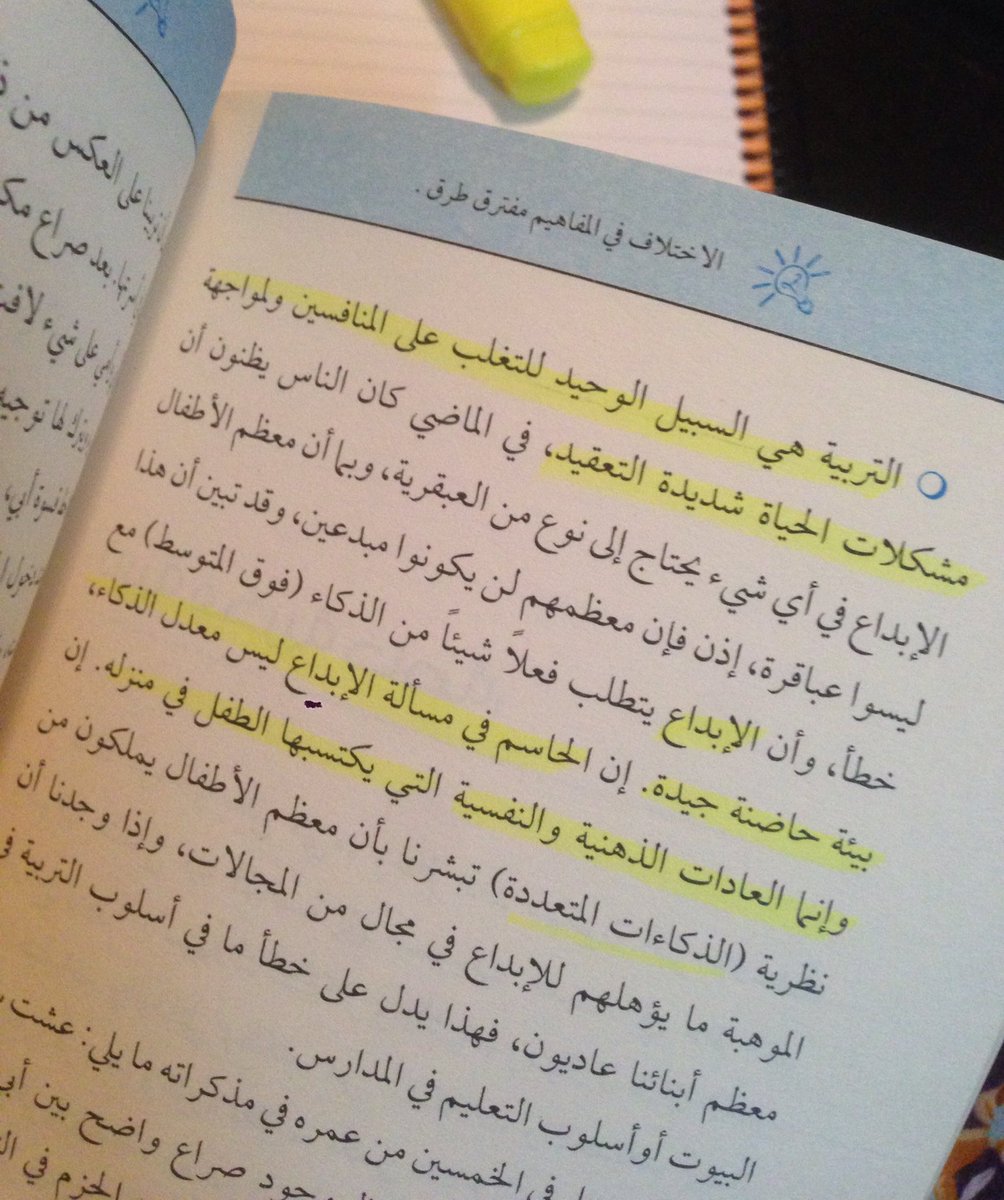 الاختلاف في المفاهيم مفترق طرق .
التربية هي السبيل الوحيد للتغلب على المنافسين ولمواجهة
مشكلات الحياة شديدة التعقيد، في الماضي كان الناس يظنون أن
الإبداع في أي شيء يحتاج إلى نوع من العبقرية، وبما أن معظم الأطفال
ليسوا عباقرة، إذن فإن معظمهم لن يكونوا مبدعين، وقد تبين أن هذا
خطأ، وأن الإبداع يتطلب فعلاً شيئاً من الذكاء (فوق المتوسط) مع
بيئة حاضنة جيدة. إن الحاسم في مسألة الإبداع ليس معدل الذكاء،
وإنما العادات الذهنية والنفسية التي يكتسبها الطفل في منزله. إن
نظرية (الذكاءات المتعددة) تبشرنا بأن معظم الأطفال يملكون من
الموهبة ما يؤهلهم للإبداع في مجال من المجالات، وإذا وجدنا أن
معظم أبنائنا عاديون، فهذا يدل على خطأ ما في أسلوب التربية في
البيوت أو أسلوب التعليم في المدارس.
في الخمسين من عمره في مذكراته ما يلي: عشت
صراع واضح بين أبي
الحزم في
على العكس من
بعد صراع
على شيء
لها توجيه